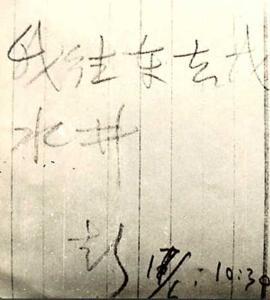 我往东去找
水井
彭 17/6.10:30